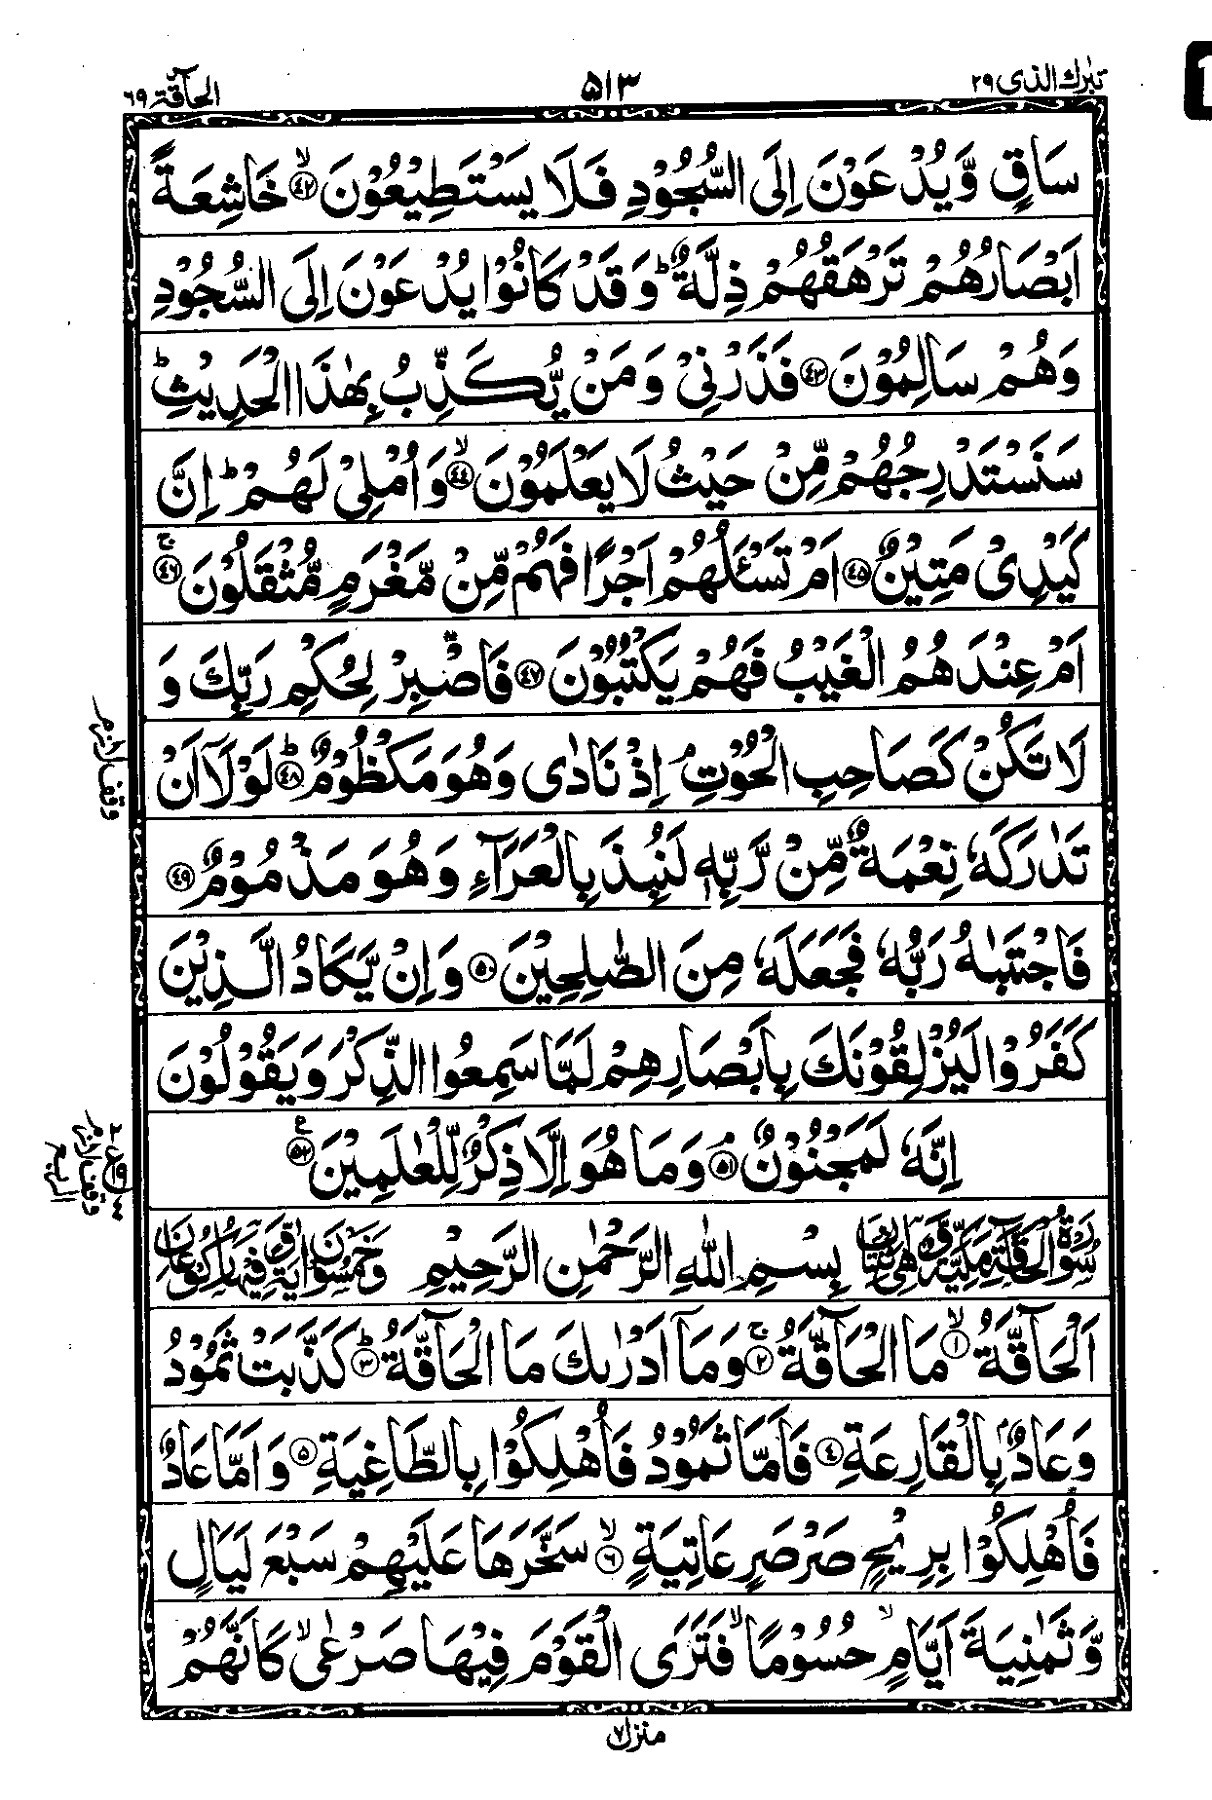 تبٰرك الذى ٢٩
٥١٣
الحآقة ٦٩
سَاقٍ وَّيُدْعَوْنَ اِلَى السُّجُوْدِ فَلَا يَسْتَطِيْعُوْنَ ﴿٤٢﴾ۙ خَاشِعَةً
اَبْصَارُهُمْ تَرْهَقُهُمْ ذِلَّةٌ ؕ وَقَدْ كَانُوْا يُدْعَوْنَ اِلَى السُّجُوْدِ
وَهُمْ سَالِمُوْنَ ﴿٤٣﴾ فَذَرْنِىْ وَمَنْ يُّكَذِّبُ بِهٰذَا الْحَدِيْثِ ؕ
سَنَسْتَدْرِجُهُمْ مِّنْ حَيْثُ لَا يَعْلَمُوْنَ ﴿٤٤﴾ۙ وَاُمْلِىْ لَهُمْ ؕ اِنَّ
كَيْدِىْ مَتِيْنٌ ﴿٤٥﴾ اَمْ تَسْـَٔلُهُمْ اَجْرًا فَهُمْ مِّنْ مَّغْرَمٍ مُّثْقَلُوْنَ ﴿٤٦﴾ۚ
اَمْ عِنْدَهُمُ الْغَيْبُ فَهُمْ يَكْتُبُوْنَ ﴿٤٧﴾ فَاصْبِرْ لِحُكْمِ رَبِّكَ وَ
لَا تَكُنْ كَصَاحِبِ الْحُوْتِ ۘ اِذْ نَادٰى وَهُوَ مَكْظُوْمٌ ﴿٤٨﴾ؕ لَوْلَاۤ اَنْ
تَدٰرَكَهٗ نِعْمَةٌ مِّنْ رَّبِّهٖ لَنُبِذَ بِالْعَرَآءِ وَهُوَ مَذْمُوْمٌ ﴿٤٩﴾
فَاجْتَبٰىهُ رَبُّهٗ فَجَعَلَهٗ مِنَ الصّٰلِحِيْنَ ﴿٥٠﴾ وَاِنْ يَّكَادُ الَّذِيْنَ
كَفَرُوْا لَيُزْلِقُوْنَكَ بِاَبْصَارِهِمْ لَمَّا سَمِعُوا الذِّكْرَ وَيَقُوْلُوْنَ
اِنَّهٗ لَمَجْنُوْنٌ ﴿٥١﴾ۘ وَمَا هُوَ اِلَّا ذِكْرٌ لِّلْعٰلَمِيْنَ ﴿٥٢﴾ع
سُوْرَةُ الْحَآقَّةِ مَكِّيَّةٌ وَّهِىَ ثِنْتَانِ بِسْمِ اللّٰهِ الرَّحْمٰنِ الرَّحِيْمِ وَخَمْسُوْنَ اٰيَةً وَّفِيْهَا رُكُوْعَانِ
اَلْحَآقَّةُ ﴿١﴾ۙ مَا الْحَآقَّةُ ﴿٢﴾ۚ وَمَاۤ اَدْرٰىكَ مَا الْحَآقَّةُ ﴿٣﴾ؕ كَذَّبَتْ ثَمُوْدُ
وَعَادٌۢ بِالْقَارِعَةِ ﴿٤﴾ فَاَمَّا ثَمُوْدُ فَاُهْلِكُوْا بِالطَّاغِيَةِ ﴿٥﴾ وَاَمَّا عَادٌ
فَاُهْلِكُوْا بِرِيْحٍ صَرْصَرٍ عَاتِيَةٍ ﴿٦﴾ۙ سَخَّرَهَا عَلَيْهِمْ سَبْعَ لَيَالٍ
وَّثَمٰنِيَةَ اَيَّامٍ ۙ حُسُوْمًا ۙ فَتَرَى الْقَوْمَ فِيْهَا صَرْعٰى ۙ كَاَنَّهُمْ
منزل ٧
وقف لازم
وقف لازم
الربع